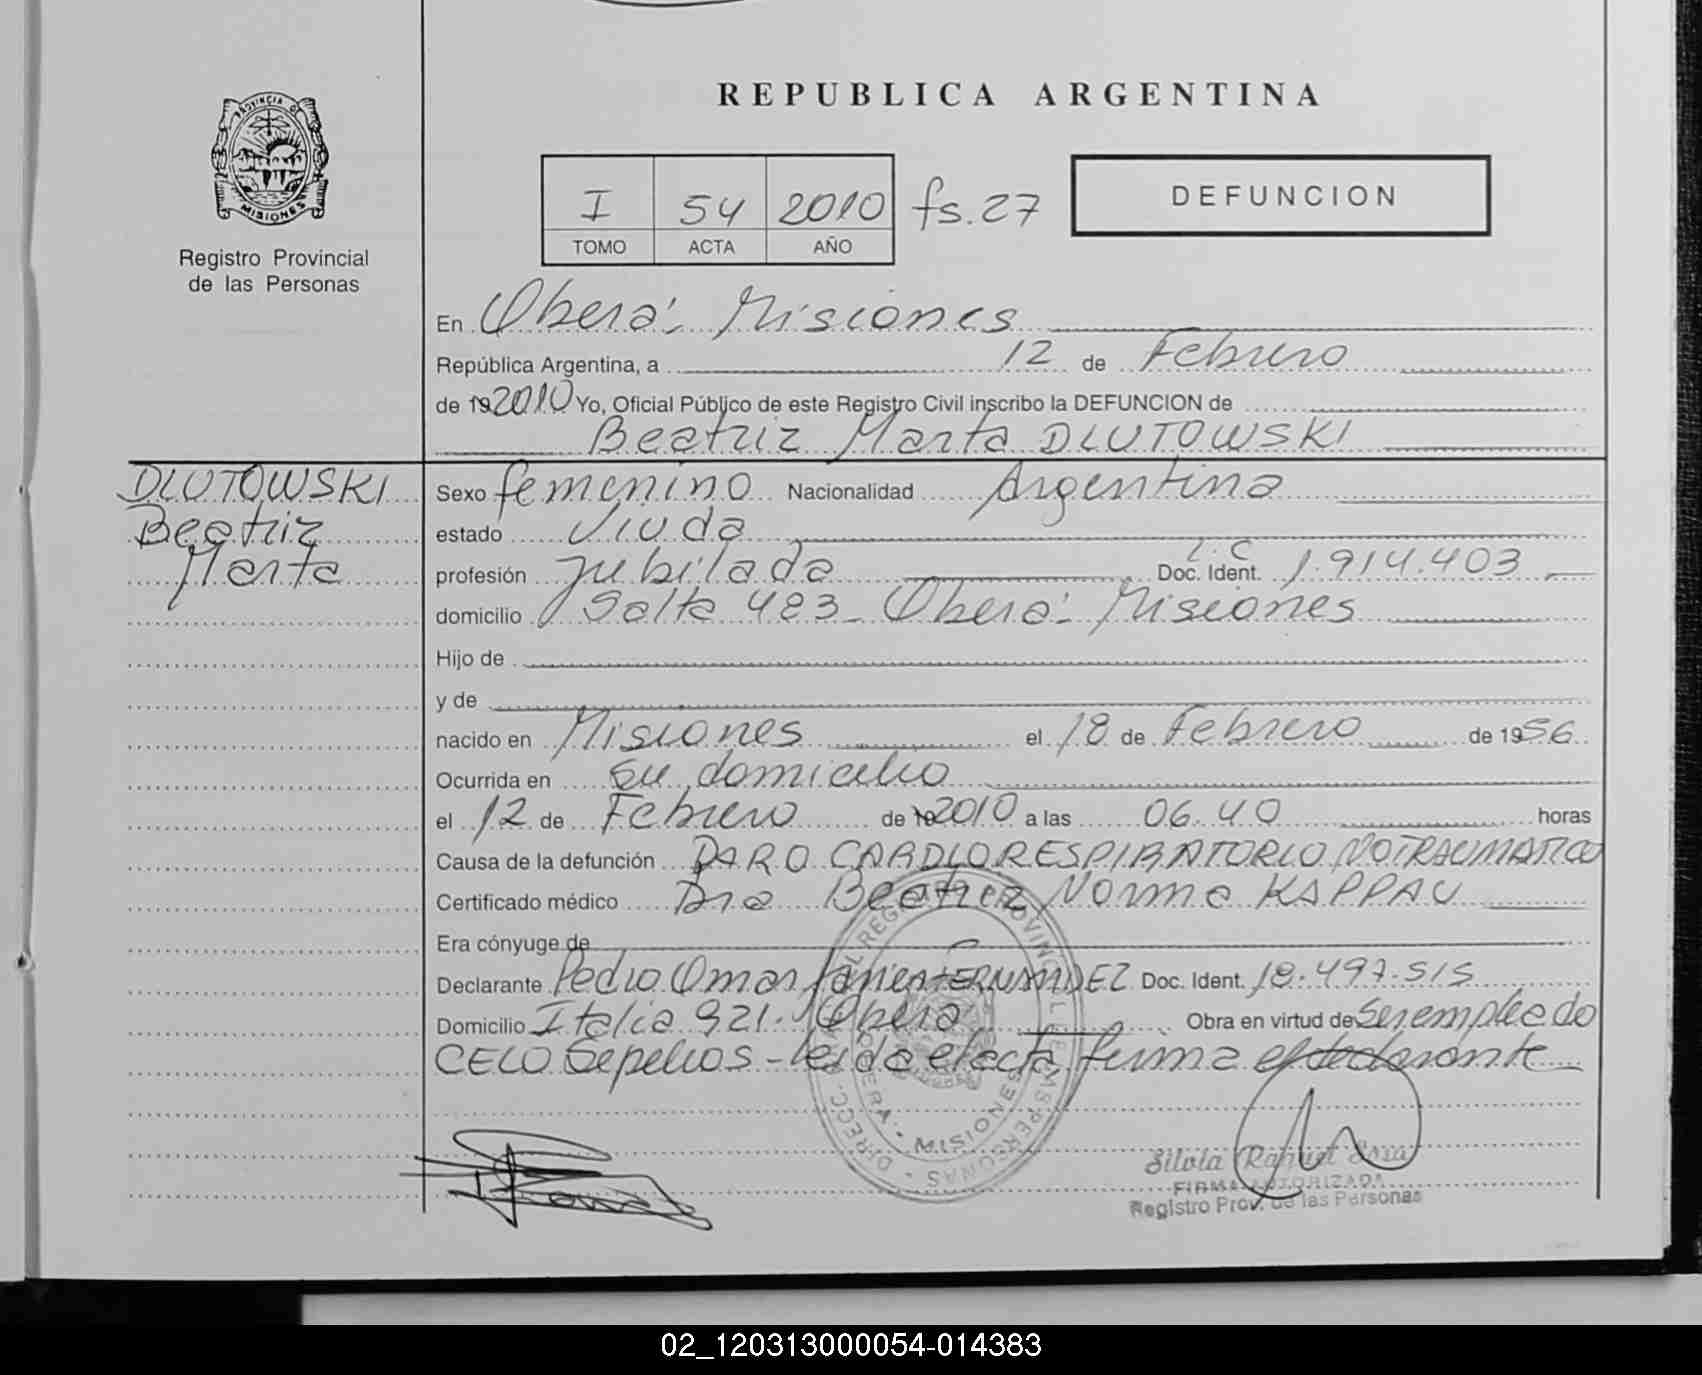 PROVINCIA DE
MISIONES
Registro Provincial
de las Personas
REPUBLICA ARGENTINA
I 54 2010 fs.27
TOMO ACTA AÑO
DEFUNCION
En Oberá - Misiones
República Argentina, a 12 de Febrero
de 19 2010 Yo, Oficial Público de este Registro Civil inscribo la DEFUNCION de
Beatriz Marta DLUTOWSKI
DLUTOWSKI
Beatriz
Marta
Sexo femenino Nacionalidad Argentina
estado Viuda
profesión Jubilada Doc. Ident. L.C 1.914.403
domicilio Salta 483 - Oberá - Misiones
Hijo de
y de
nacido en Misiones el 18 de Febrero de 1956
Ocurrida en su domicilio
el 12 de Febrero de 19 2010 a las 06.40 horas
Causa de la defunción PARO CARDIORESPIRATORIO NO TRAUMATICO
Certificado médico Dra Beatriz Norma KAPPAU
Era cónyuge de
Declarante Pedro Omar FERNANDEZ Doc. Ident. 18.497.515
Domicilio Italia 921 - Oberá Obra en virtud de Ser empleado
CELO Sepelios - leida el acta firma el declarante
DIRECC. GRAL REGISTRO PROVINCIAL DE LAS PERSONAS
OBERA - MISIONES
Silvia Raquel
FIRMA AUTORIZADA
Registro Prov. de las Personas
02_120313000054-014383